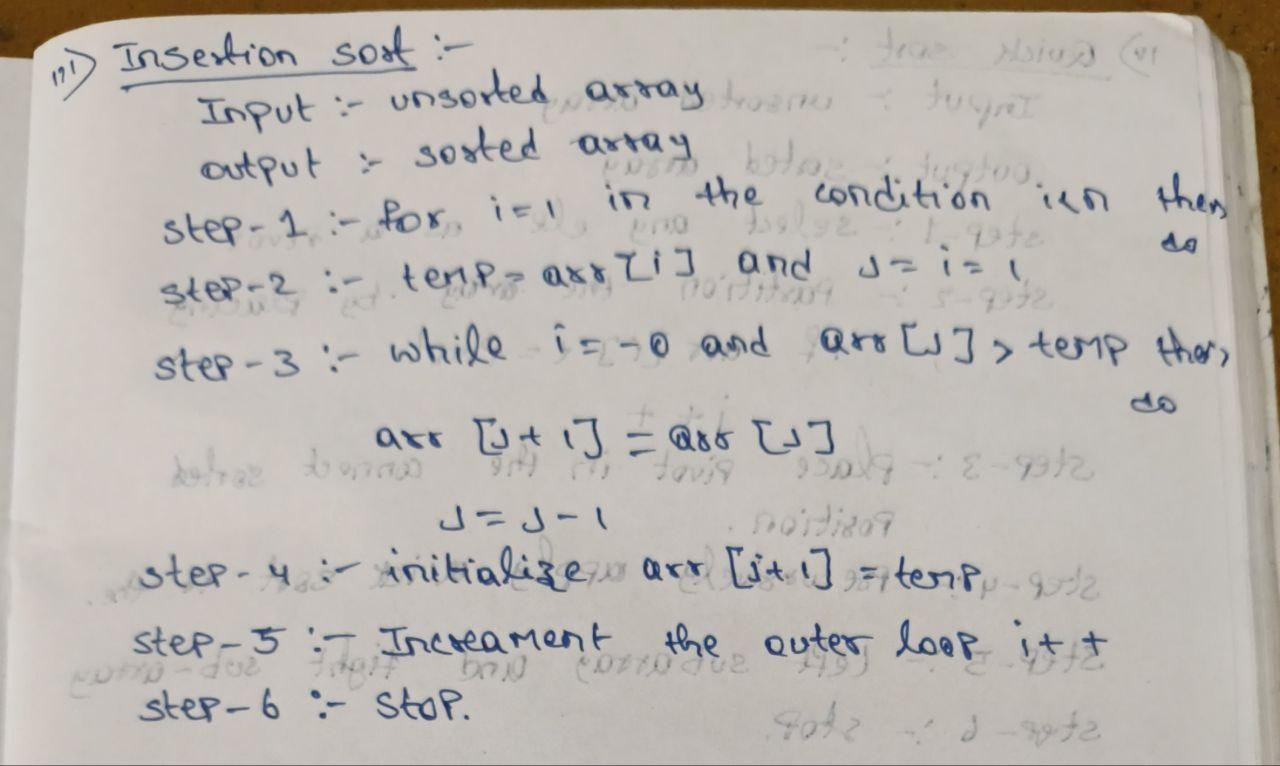 iii) Insertion sort :-
Input :- unsorted array
output :- sorted array
step-1 :- for i=1 in the condition i<n then
do
step-2 :- temp = arr[i] and J = i = 1
step-3 :- while i = -0 and arr[J] > temp then
do
arr [J+1] = arr [J]
J = J-1
step-4 :- initialize arr [j+1] = temp
step-5 :- Increament the outer loop i++
step-6 :- stop.